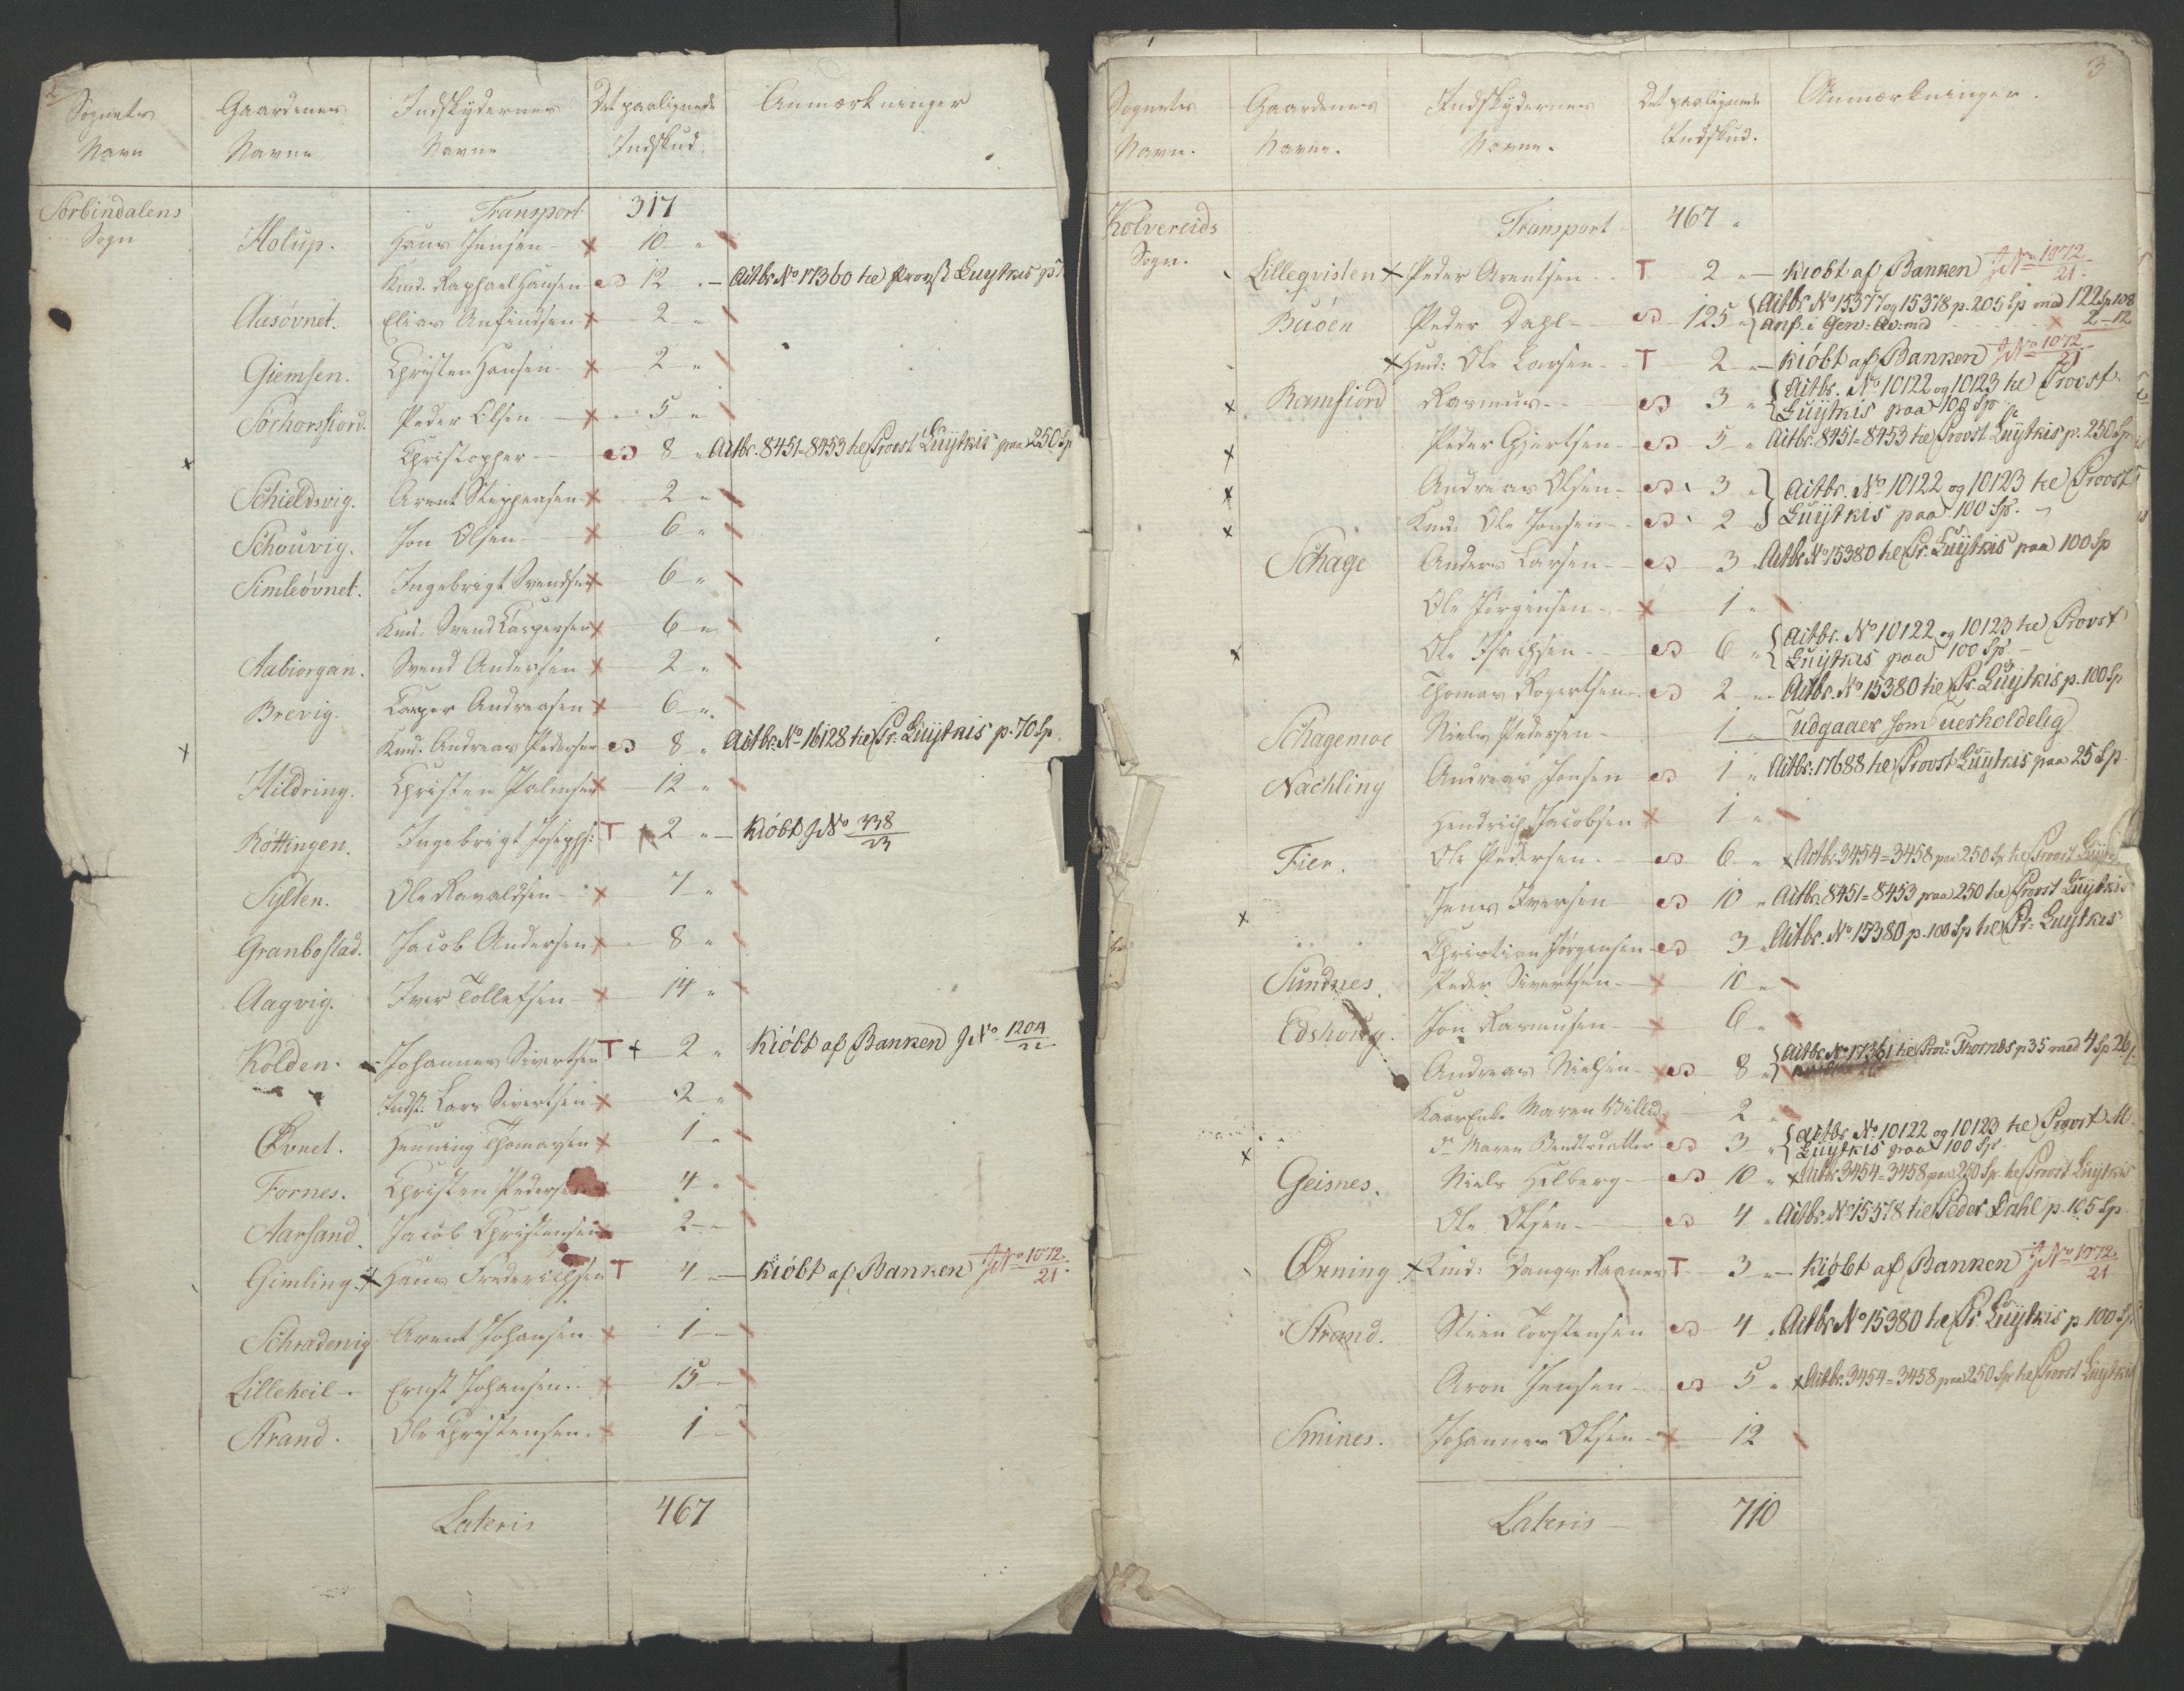 2
Sognets Navn | Gaardenes Navne | Indskydernes Navne | Det paalignede Indskud | Anmærkninger
Sørbindalens Sogn | Transport | 317
Holup. | Hans Jensen | × | 10 "
Kmd. Raphael Hansen | 12 " | Actbr. No 17360 til Provst Luytkis p
Aasövnet. | Elias Anfindsen | × | 2 "
Giemsen. | Christen Hansen | × | 2 "
Sörhorsfiord. | Peder Olsen | × | 5 "
× | Christopher | 8 " | Actbr. 8451=8453 til Provst Luytkis paa 250 Sp
Schieldsvig. | Arent Steppensen | × | 2 "
Schouvig. | Jon Olsen | × | 6 "
Simleövnet. | Ingebrigt Svendsen | × | 6 "
Kmd. Svend Caspersen | × | 6 "
Aabiorgan. | Svend Andersen | × | 2 "
Brevig. | Casper Andreasen | × | 6 "
× | Kmd. Andreas Pedersen | 8 " | Actbr. No 16128 til Pr. Luytkis p. 70 Sp
Hildring. | Christen Palmsen | × | 12 "
Röttingen. | Ingebrigt Josephs: | T | 2 " | Kiöbt J No 338/23
Sylten. | Ole Havaldsen | × | 7 "
Granbostad. | Jacob Andersen | × | 8 "
Aagvig. | Iver Tollefsen | × | 14 "
Kolden. | Johannes Sivertsen | T + | 2 " | Kiöbt af Banken J No 1204/22
Indst: Lars Sivertsen | × | 2 "
Övnet. | Henning Thomasen | × | 1 "
Fornes. | Christen Pedersen | 4 "
Aarsand. | Jacob Christensen | 2 "
Gimling. | × Hans Frederichsen | T | 4 | Kiöbt af Banken J No 1072/21.
Schradenvig | Arent Johansen | × | 1
Lilleheil | Ernst Johansen | × | 15
Strand. | Ole Christensen | × | 1
Lateris | 467
3
Sognets Navn. | Gaardenes Navne. | Indskydernes Navne. | Det paalignede Indskud. | Anmærkninger.
Kolvereids Sogn. | Transport | 467 "
Lilleqvisten | × Peder Arentsen | T | 2 " | Kiobt af Banken J No 1072/21.
Buöen | Peder Dahl | 125 " | { Actbr. No 15377 og 15378 p. 205 Sp med 122 Sp 108
Anf. i Gen: Qv: med × 2-12
× Hmd: Ole Larsen | T | 2 | Kiöbt af Banken J No 1072/21
× | Ramfiord | Rasmus | 3 " | { Actbr. No 10122 og 10123 til Provst
Luytkis paa 100 Sp
× | Peder Gjertsen | 5 " | Actbr. 8451=8453 til Provst Luytkis p. 250 Sp
× | Andreas Olsen | 3 " | } Actbr. No 10122 og 10123 til Provst
× | Kmd: Ole Jonsen | 2 " | Luytkis paa 100 Sp.
Schage | Anders Larsen | 3 | Actbr. No 15380 til Pr. Luytkis paa 100 Sp
Ole Jörgensen | × | 1 "
× | Ole Isachsen | 6 " | { Actbr. No 10122 og 10123 til Provst
Luytkis paa 100 Sp
Thomas Rogertsen | 2 " | Actbr. No 15380 til Pr. Luytkis p. 100 Sp
Schagemoe | Niels Pedersen | 1 " | udgaaer som uerholdelig
Nachling | Andreas Jonsen | 1 " | Actbr. 17688 til Provst Luytkis paa 25 Sp
Hendrich Jacobsen | × | 1 "
Fier. | Ole Pedersen | 6 " | × Actbr. 3454=3458 paa 250 Sp til Provst Luytkis
× | Jens Iversen | 10 " | Actbr. 8451=8453 paa 250 til Provst Luytkis
Christian Jörgensen | 3 " | Actbr. No 15380 p. 100 Sp til Pr: Luytkis
Sundnes. | Peder Sivertsen | × | 10 "
Edshoug. | Jon Rasmusen | × | 6 "
Andreas Nielsen | × | 8 " | { Actbr. No 17361 til Prov: Thornes p 35 med 4 Sp 26
Enke Maren | 2 "
× | do Maren Bendtsdatter | 3 " | { Actbr. No 10122 og 10123 til Provst M.
Luytkis paa 100 Sp
Geisnes. | Niels Holberg | 10 " | × Actbr. 3454=3458 paa 250 Sp. til Provst Luytkis
Ole Olsen | 4 " | Actbr. No 15378 til Peder Dahl p. 105 Sp.
Örning | × Kmd: | T | 3 | Kiöbt af Banken J No 1072/21
Strand. | Steen Torstensen | 4 " | Actbr No 15380 til Pr. Luytkis p 100 Sp
Aron Jensen | 5 " | × Actbr. 3454=3458 paa 250 Sp til Provst Luytkis
Smines. | Johannes Olsen | × | 12
Lateris | 710